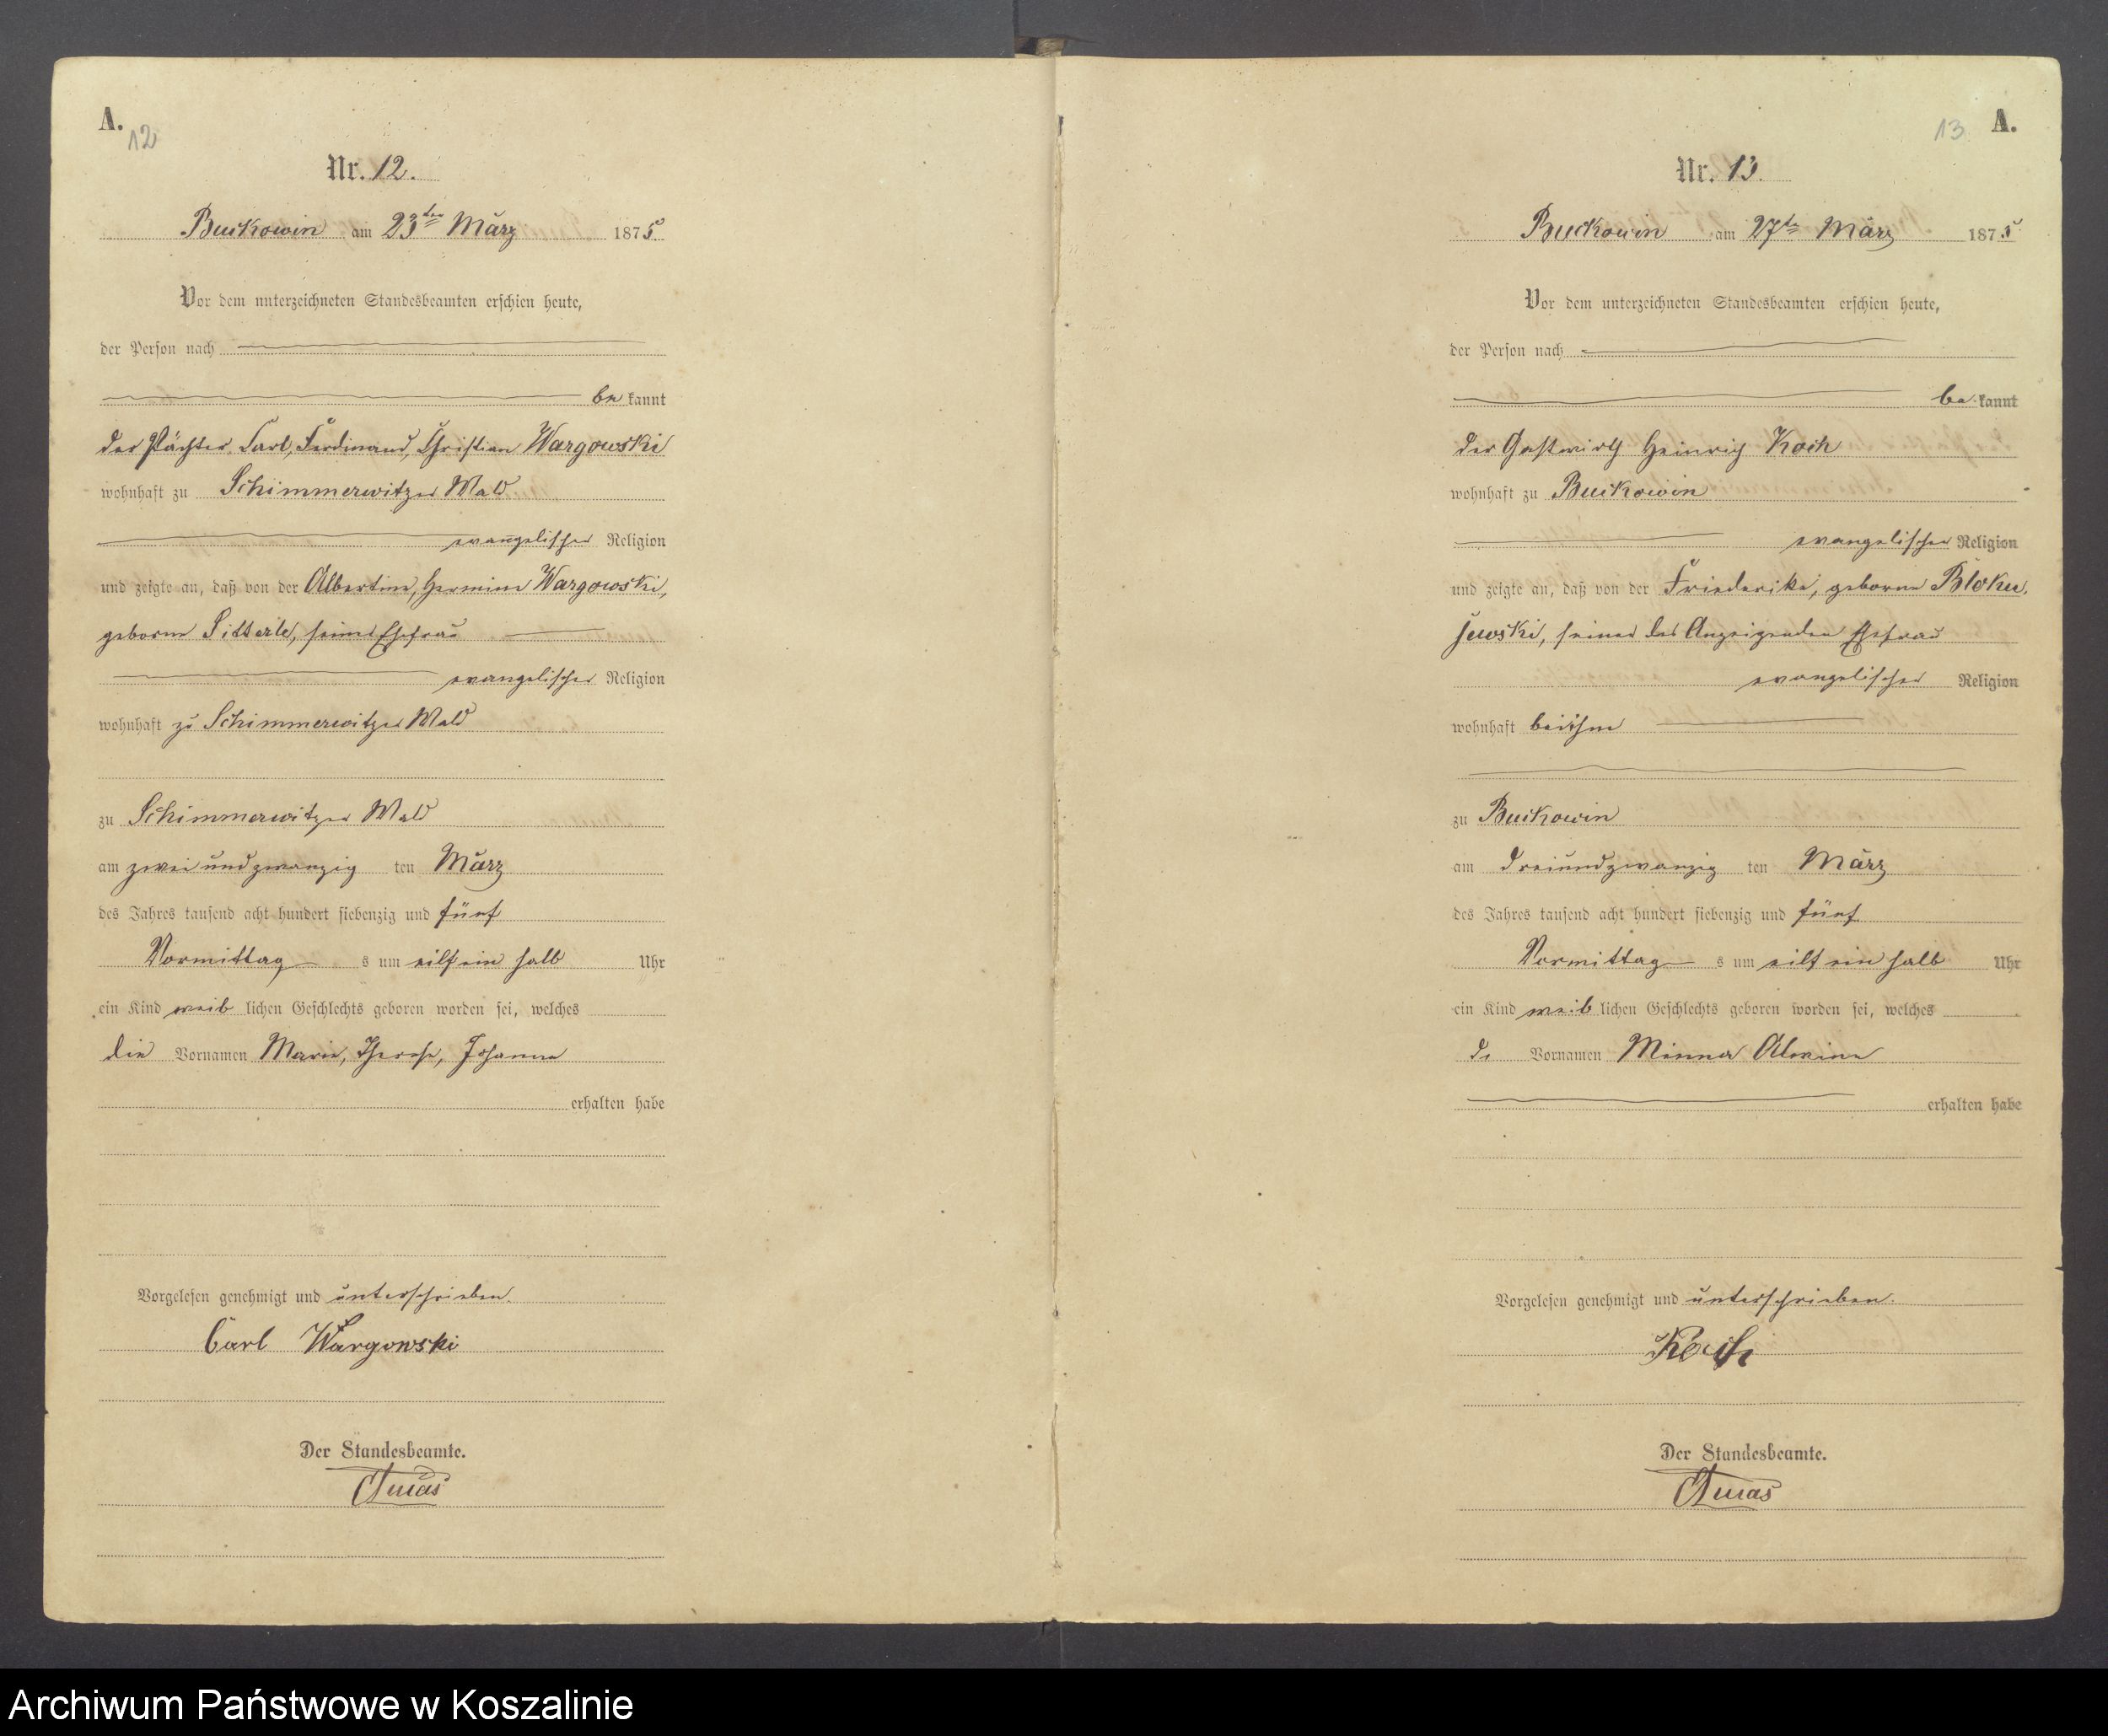 A.
12
Nr. 12.
Buckowin am 23ten März 1875
Vor dem unterzeichneten Standesbeamten erschien heute,
der Person nach
be kannt
der Pächter Carl, Ferdinand, Christian Wargowski
wohnhaft zu Schimmerwitzer Wald
evangelischer Religion
und zeigte an, daß von der Albertine, Hermine Wargowski,
geborne Sitterle, seine Ehefrau
evangelischer Religion
wohnhaft zu Schimmerwitzer Wald
zu Schimmerwitzer Wald
am zwei und zwanzig ten März
des Jahres tausend acht hundert siebenzig und fünf
Vormittag s um eilf ein halb Uhr
ein Kind weib lichen Geschlechts geboren worden sei, welches
die Vornamen Marie, Therese, Johanne
erhalten habe
Vorgelesen genehmigt und unterschrieben.
Carl Wargowski
Der Standesbeamte.
13
A.
Nr. 13.
Buckowin am 27te März 1875
Vor dem unterzeichneten Standesbeamten erschien heute,
der Person nach
be kannt
der Gastwirth Heinrich Koch
wohnhaft zu Buckowin
evangelischer Religion
und zeigte an, daß von der Friederike, geborne Bloku,
jewski, seiner des Anzeigenden Ehefrau
evangelischer Religion
wohnhaft bei ihm
zu Buckowin
am dreiundzwanzig ten März
des Jahres tausend acht hundert siebenzig und fünf
Vormittag s um eilf ein halb Uhr
ein Kind weib lichen Geschlechts geboren worden sei, welches
d. Vornamen Minna Alwine
erhalten habe
Vorgelesen genehmigt und unterschrieben.
Koch
Der Standesbeamte.
Archiwum Państwowe w Koszalinie